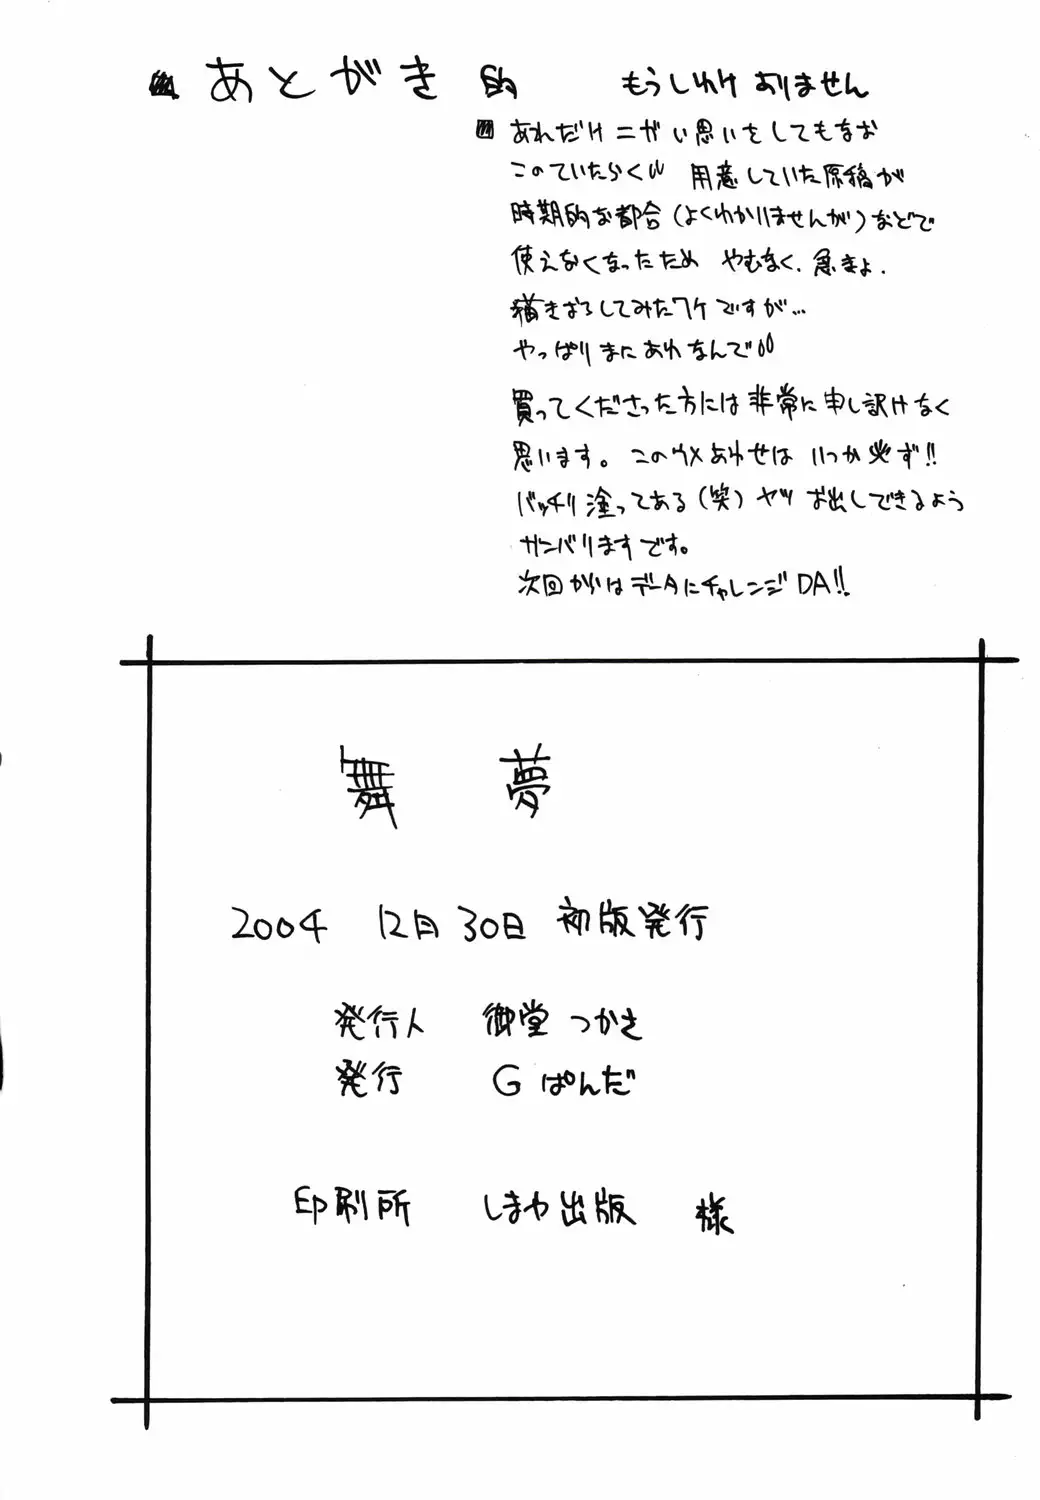 あとがき的 もうしわけありません
あれだけニガい思いをしてもなお
このていたらく 用意していた原稿が
時期的な都合(よくわかりませんが)などで
使えなくなったため やむなく、急きょ、
描きおろしてみたワケですが…
やっぱりまにあわなんで
買ってくださった方には非常に申し訳けなく
思います。このウメあわせは いつか必ず!!
バッチリ塗ってある(笑)ヤツ お出しできるよう
ガンバリますです。
次回からはデータにチャレンジDA!!
舞 夢
2004 12月30日 初版発行
発行人 御堂つかさ
発行 Gぱんだ
印刷所 しまや出版 様